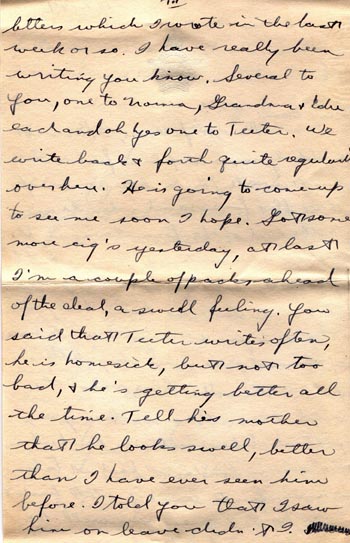 III
letters which I wrote in the last
week or so. I have really been
writing you know. Several to
you, one to Norma, Grandma & Edie
each and oh yes one to Teeter. We
write back & forth quite regularly
over here. He is going to come up
to see me soon I hope. Got some
more cig's yesterday, at last
I'm a couple of packs ahead
of the deal, a swell feeling. You
said that Teeter writes often,
he is homesick, but not too
bad, & he's getting better all
the time. Tell his mother
that he looks swell, better
than I have ever seen him
before. I told you that I saw
him on leave didn't I.